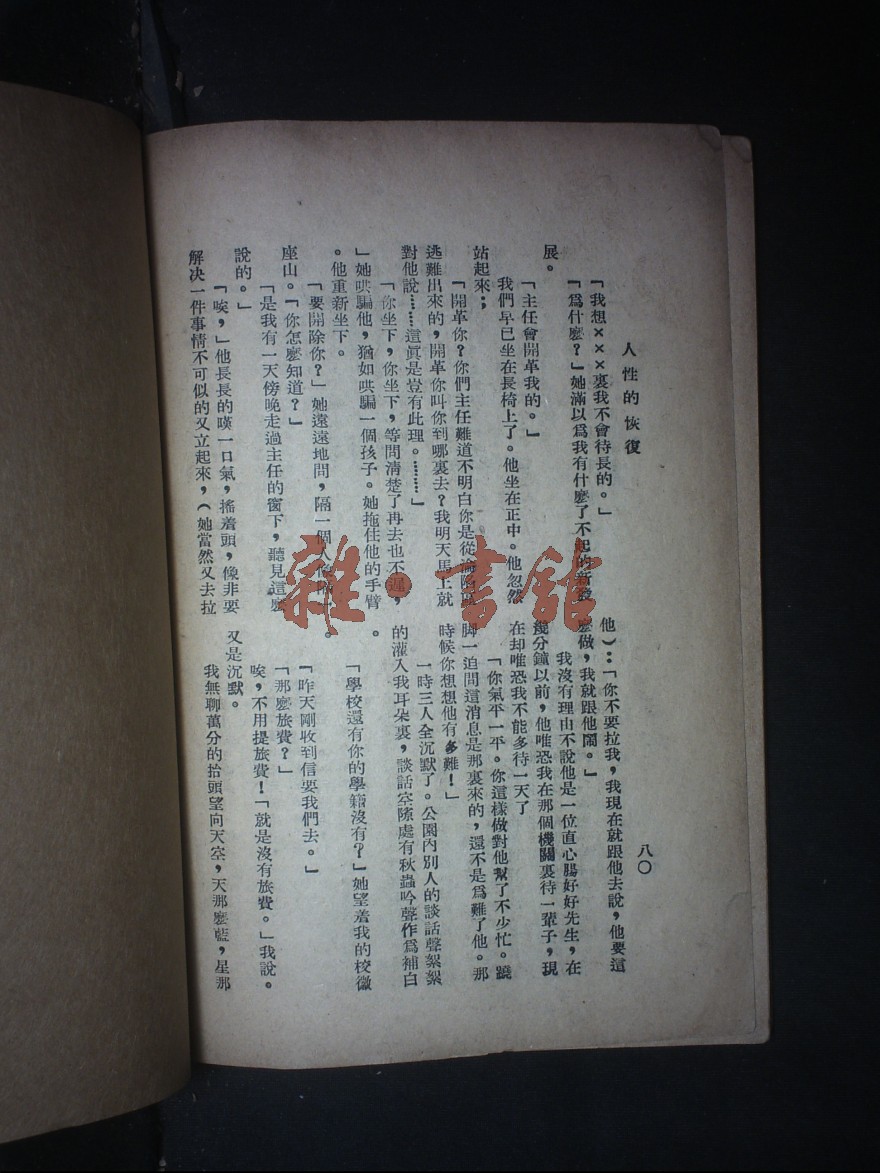 人性的恢復
八〇
「我想×××裏我不會待長的。」
「爲什麼?」她滿以爲我有什麼了不起的新發
展。
「主任會開革我的。」
我們早已坐在長椅上了。他坐在正中。他忽然
站起來;
「開革你?你們主任難道不明白你是從淪陷區
逃難出來的,開革你叫你到哪裏去?我明天馬上就
對他說……這眞是豈有此理。………」
「你坐下,你坐下,等問清楚了再去也不遲,
」她哄騙他,猶如哄騙一個孩子。她拖住他的手臂
。他重新坐下。
「要開除你?」她遠遠地問,隔一個人像隔一
座山。「你怎麼知道?」
「是我有一天傍晚走過主任的窗下,聽見這麼
說的。」
「唉,」他長長的嘆一口氣,搖着頭,像非要
解决一件事情不可似的又立起來,(她當然又去拉
他):「你不要拉我,我現在就跟他去說,他要這
麼做,我就跟他鬧。」
我沒有理由不說他是一位直心腸好好先生,在
幾分鐘以前,他唯恐我在那個機關裏待一輩子,現
在却唯恐我不能多待一天了
「你氣平一平。你這樣做對他幫了不少忙。蹺
脚一追問這消息是那裏來的,還不是爲難了他。那
時候你想想他有多難!」
一時三人全沉默了。公園內別人的談話聲絮絮
的灌入我耳朵裏,談話空隙處有秋蟲吟聲作爲補白
。
「學校還有你的學籍沒有?」她望着我的校徽
。
「昨天剛收到信要我們去。」
「那麼旅費?」
唉,不用提旅費!「就是沒有旅費。」我說。
又是沉默。
我無聊萬分的抬頭望向天空,天那麼藍,星那
雜·書館